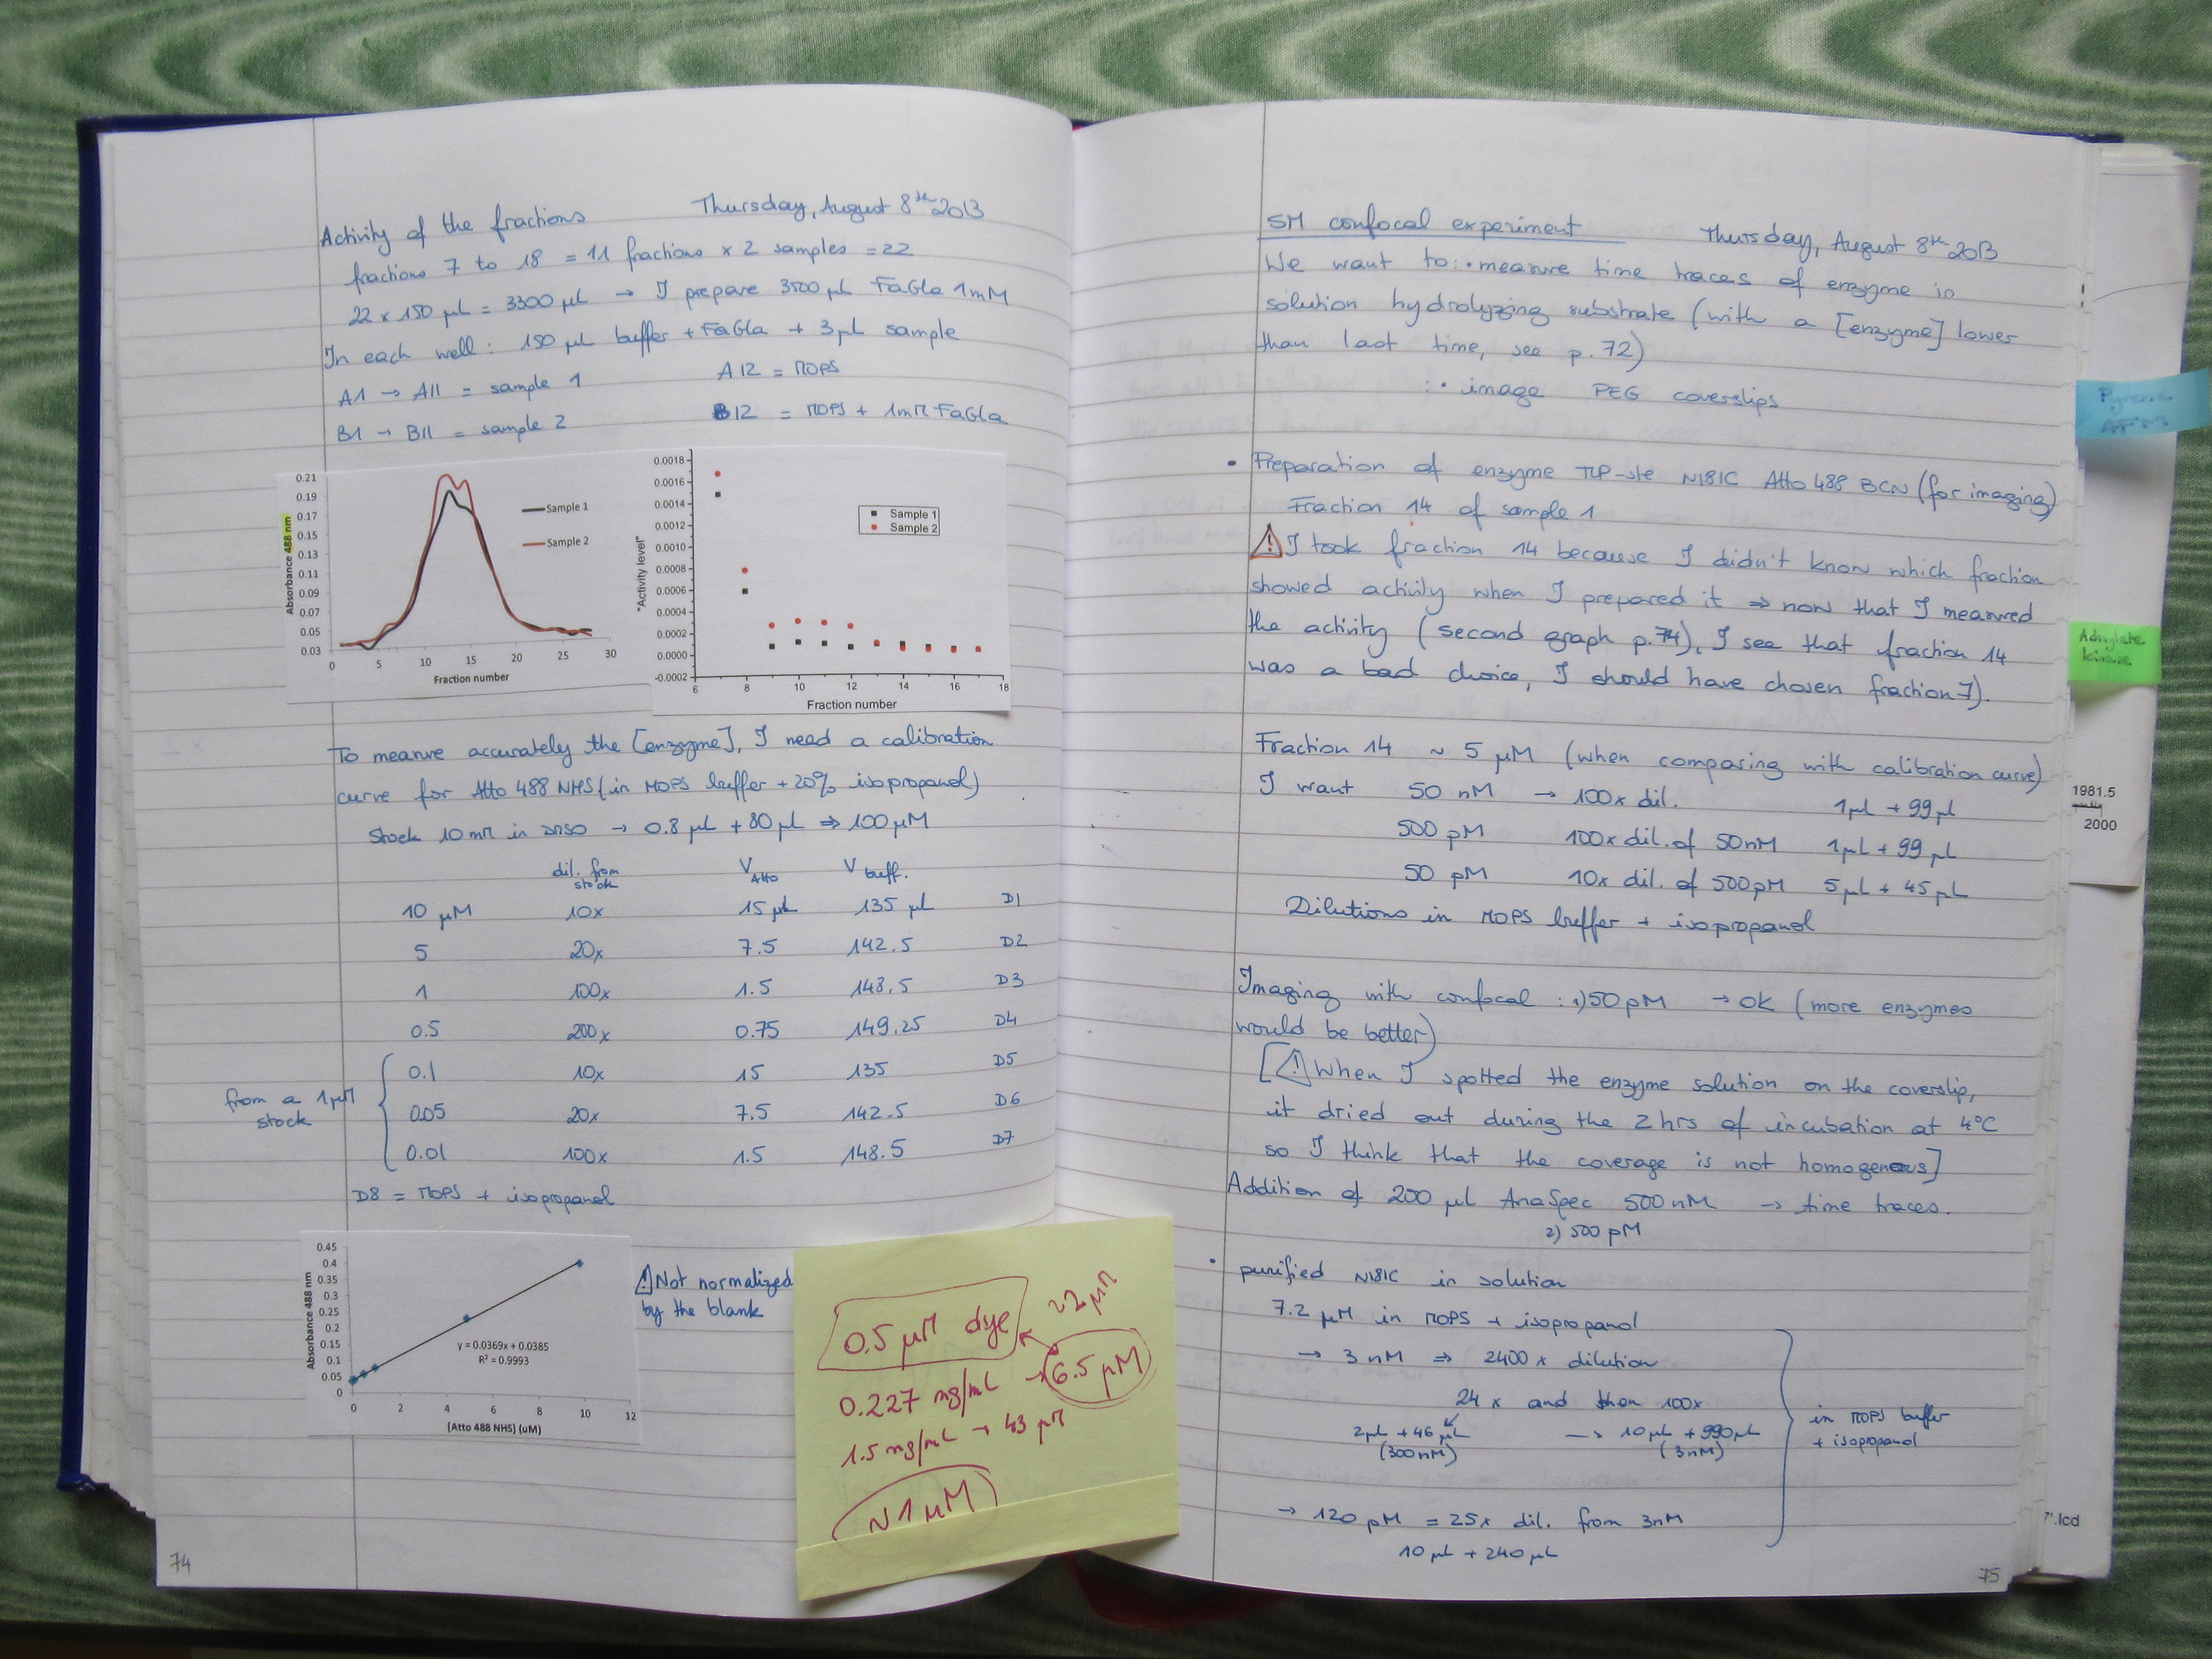 Activity of the fractions Thursday, August 8th 2013
fractions 7 to 18 = 11 fractions x 2 samples = 22
22 x 150 µL = 3300 µL → I prepare 3500 µL FaGla 1mM
In each well: 150 µL buffer + FaGla + 3µL sample
A1 → A11 = sample 1 A12 = MOPS
B1 → B11 = sample 2 B12 = MOPS + 1mM FaGla
Absorbance 488 nm
0.21
0.19
0.17
0.15
0.13
0.11
0.09
0.07
0.05
0.03
0 5 10 15 20 25 30
Fraction number
Sample 1
Sample 2
"Activity level"
0.0018
0.0016
0.0014
0.0012
0.0010
0.0008
0.0006
0.0004
0.0002
0.0000
-0.0002
6 8 10 12 14 16 18
Fraction number
Sample 1
Sample 2
To measure accurately the [enzyme], I need a calibration
curve for Atto 488 NHS (in MOPS buffer + 20% isopropanol)
Stock 10 mM in DMSO → 0.8 µL + 80 µL ⇒ 100 µM
dil. from stock V Atto V buff.
10 µM 10x 15 µL 135 µL D1
5 20x 7.5 142.5 D2
1 100x 1.5 148.5 D3
0.5 200x 0.75 149.25 D4
from a 1µM stock
0.1 10x 15 135 D5
0.05 20x 7.5 142.5 D6
0.01 100x 1.5 148.5 D7
D8 = MOPS + isopropanol
Absorbance 488 nm
0.45
0.4
0.35
0.3
0.25
0.2
0.15
0.1
0.05
0
y = 0.0369x + 0.0385
R² = 0.9993
0 2 4 6 8 10 12
[Atto 488 NHS] (uM)
! Not normalized
by the blank
0.5 µM dye ~2 µM
0.227 mg/mL → 6.5 µM
1.5 mg/mL → 43 µM
~1 µM
74
SM confocal experiment Thursday, August 8th 2013
We want to: • measure time traces of enzyme in
solution hydrolyzing substrate (with a [enzyme] lower
than last time, see p. 72)
: • image PEG coverslips
• Preparation of enzyme TLP-ste N181C Atto 488 BCN (for imaging)
Fraction 14 of sample 1
! I took fraction 14 because I didn't know which fraction
showed activity when I prepared it ⇒ now that I measured
the activity (second graph p. 74), I see that fraction 14
was a bad choice, I should have chosen fraction 7).
Fraction 14 ~ 5 µM (when comparing with calibration curve)
I want 50 nM → 100x dil. 1µL + 99 µL
500 pM 100x dil. of 50nM 1µL + 99 µL
50 pM 10x dil. of 500pM 5µL + 45µL
Dilutions in MOPS buffer + isopropanol
Imaging with confocal : 1) 50 pM → OK (more enzymes
would be better)
[! When I spotted the enzyme solution on the coverslip,
it dried out during the 2 hrs of incubation at 4°C
so I think that the coverage is not homogeneous]
Addition of 200 µL AnaSpec 500 nM → time traces.
2) 500 pM
• purified N181C in solution
7.2 µM in MOPS + isopropanol
→ 3 nM ⇒ 2400 x dilution
24 x and then 100x
2µL + 46 µL → 10µL + 990µL
(300nM) (3nM)
in MOPS buffer
+ isopropanol
→ 120 pM = 25x dil. from 3nM
10 µL + 240 µL
75
Adenylate
kinase
1981.5
2000
7'.lcd